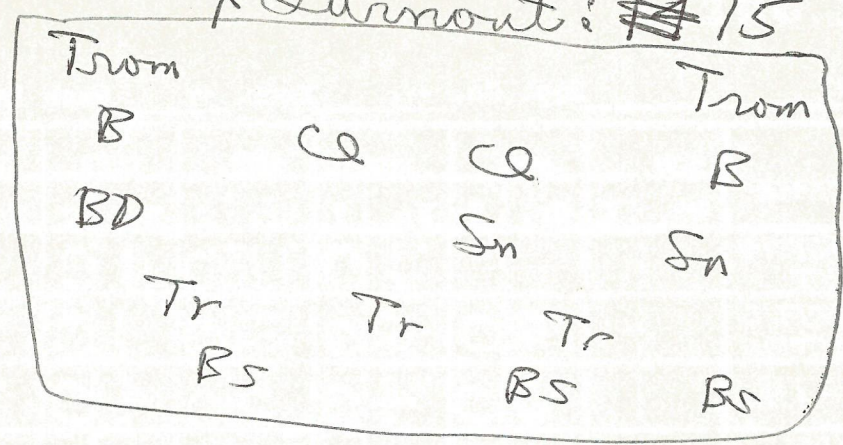 Turnout: 15
Trom Trom
B Cl Cl B
BD Sn Sn
Tr Tr Tr
BS BS BS